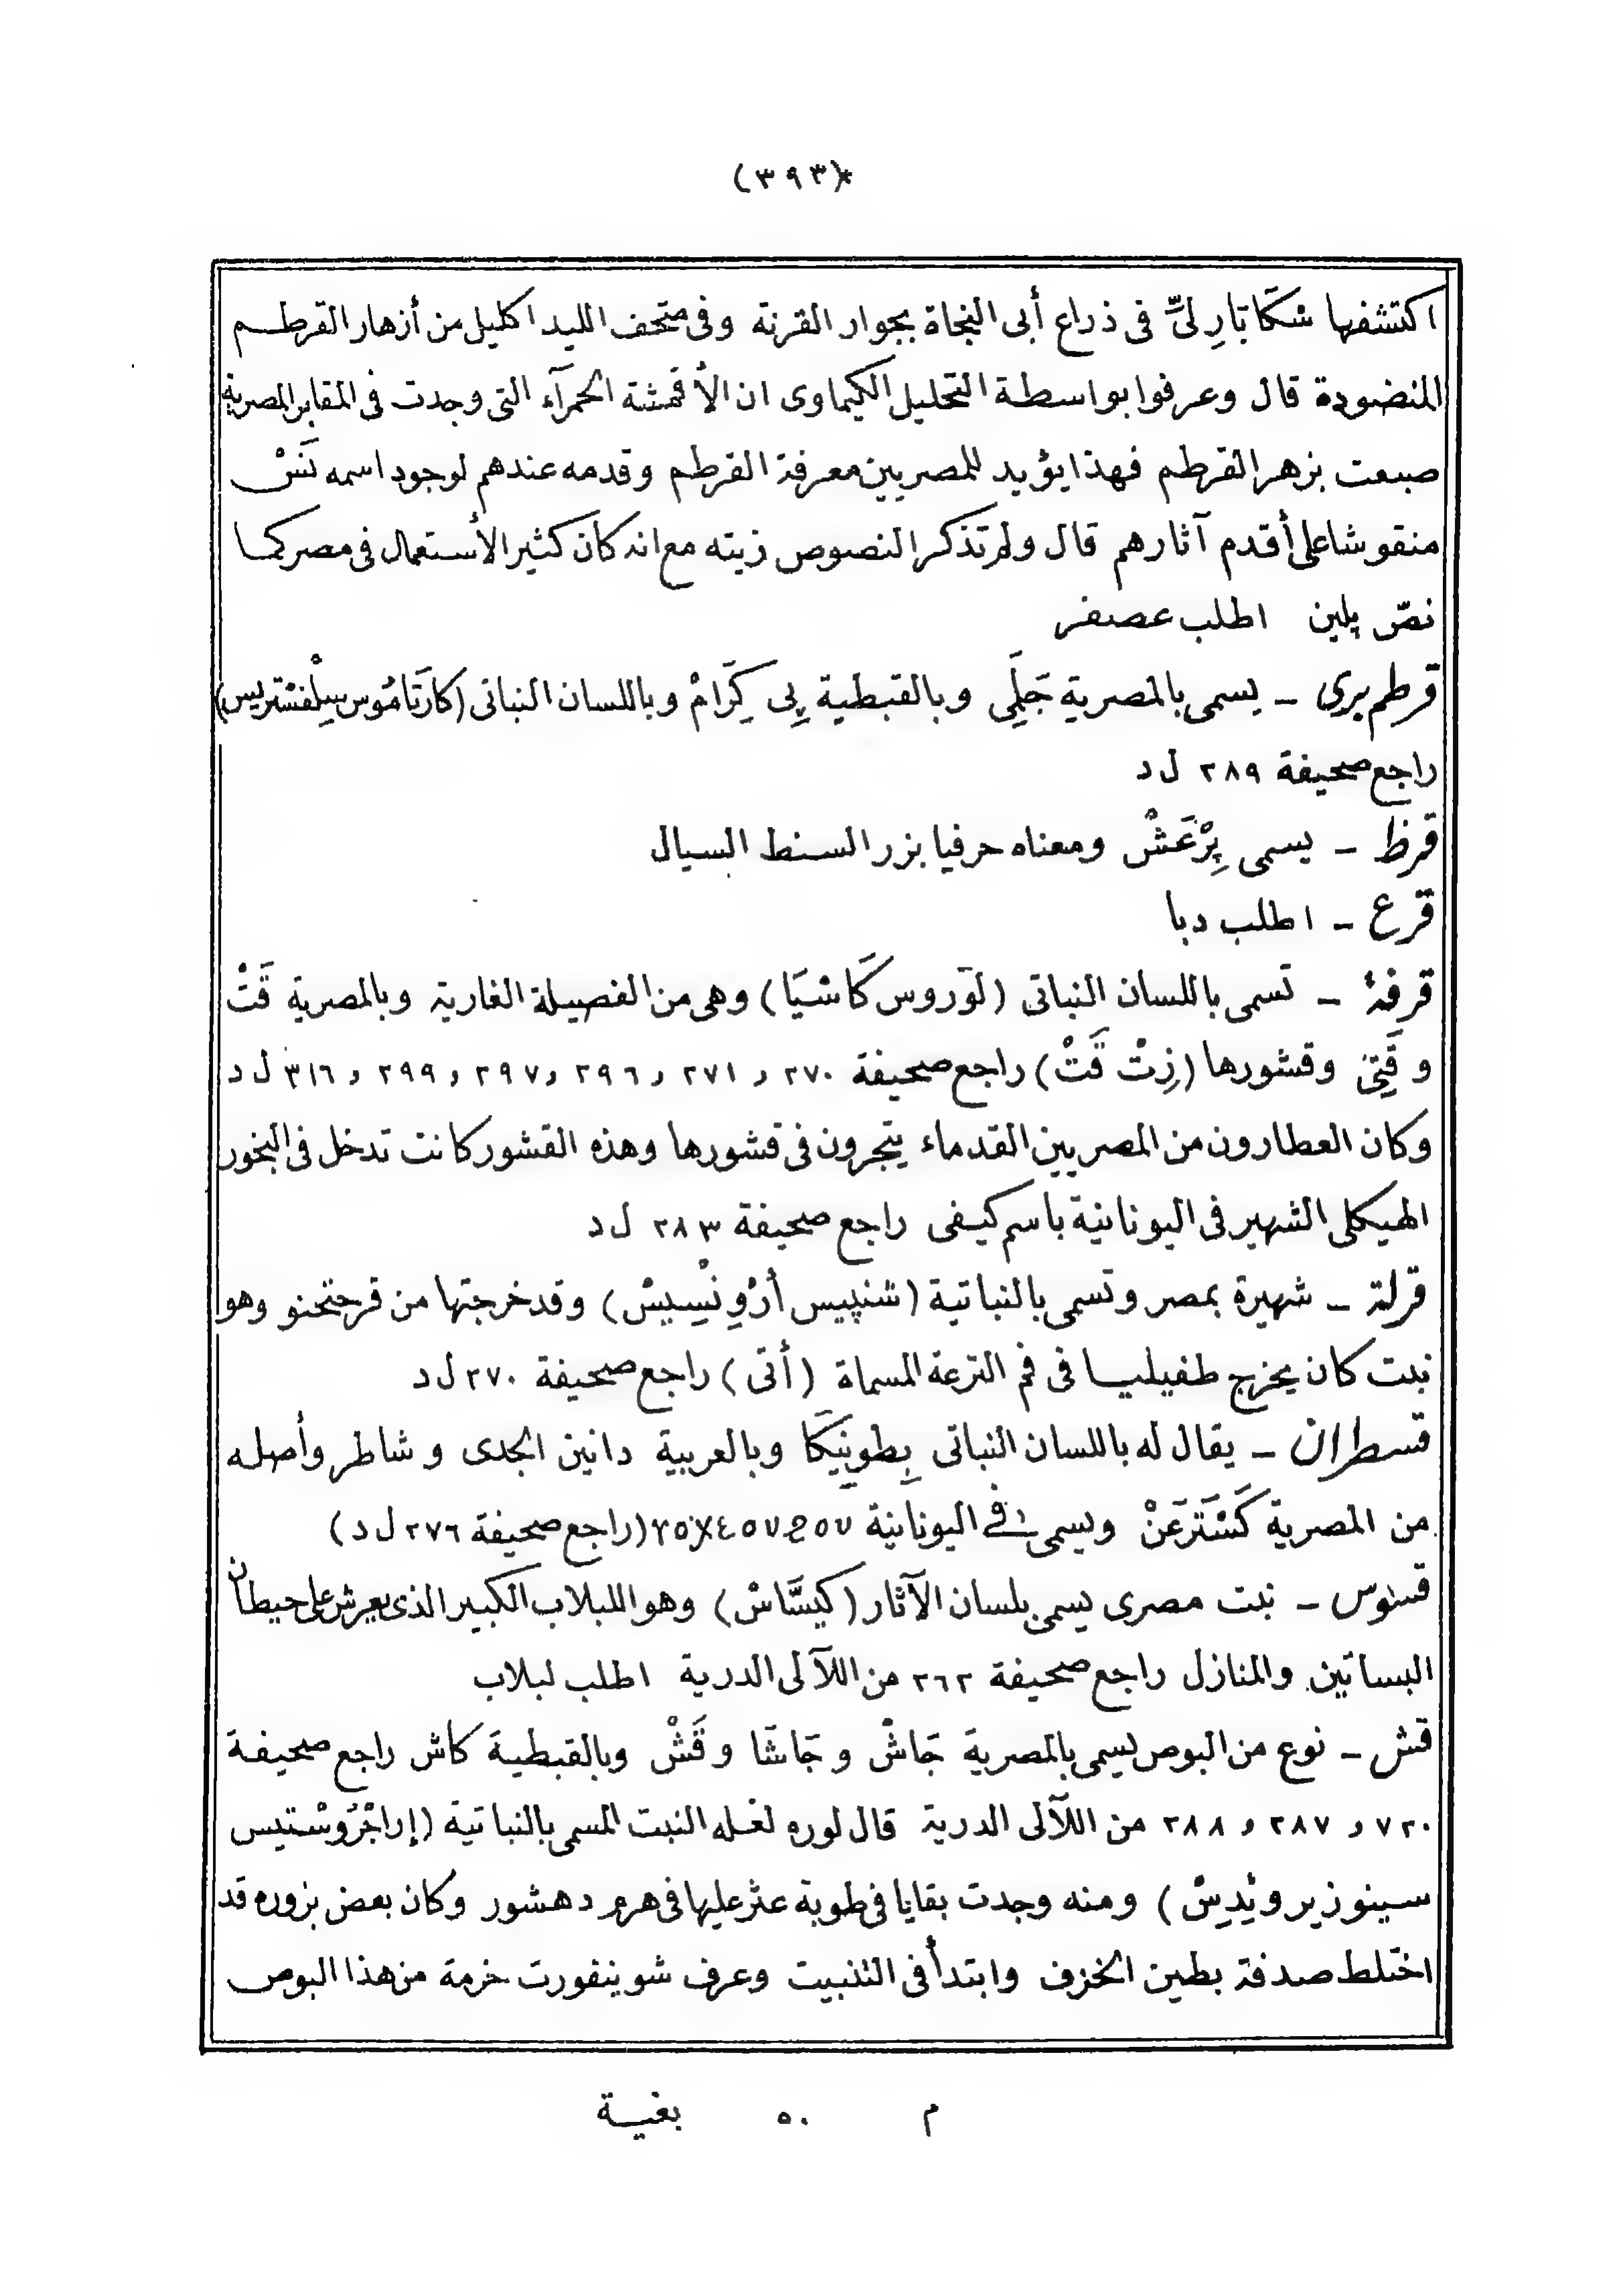 (٣٩٣)
اكتشفها شكاتارلىّ فى ذراع أبى النجاة بجوار القرنة وفى متحف الليد اكليل من أزهار القرطم
المنضودة قال وعرفوا بواسطة التحليل الكيماوى ان الأقمشة الحمرآء التى وجدت فى المقابر المصرية
صبعت بزهر القرطم فهذا يؤيد للمصريين معرفة القرطم وقدمه عندهم لوجود اسمه نَسْ
منقوشا على أقدم آثارهم قال ولم تذكر النصوص زيته مع انه كان كثير الأستعمال فى مصر كما
نصّ پلين اطلب عصفر
قرطم برى - يسمى بالمصرية جَلَمِى وبالقبطية پِى كِرَامْ وباللسان النباتى (كارَتامُوس سِيلْفسْتريس)
راجع صحيفة ٢٨٩ ل د
قرظ - يسمى پِرْعَشْ ومعناه حرفيا بزر السنط السيال
قرع - اطلب دبا
قرفة - تسمى باللسان النباتى (لَوروس كَاشْيَا) وهى من الفصيلة الغارية وبالمصرية قَتْ
و قَتِىْ وقشورها (زِتْ قَتْ) راجع صحيفة ٢٧٠ و ٢٧١ و ٢٩٦ و ٢٩٧ و ٢٩٩ و ٣١٦ ل د
وكان العطارون من المصريين القدماء يتجرون فى قشورها وهذه القشور كانت تدخل فى البخور
الهيكلى الشهير فى اليونانية باسم كيفى راجع صحيفة ٢٨٣ ل د
قرلة - شهيرة بمصر وتسمى بالنباتية (شنپيس أرْوِنْسِيسْ) وقد خرجتها من قرحتحنو وهو
نبت كان يخرج طفيليا فى فم الترعة المسماة (أتى) راجع صحيفة ٢٧٠ ل د
قسطران - يقال له باللسان النباتى بِطونِيكَا وبالعربية دانين الجدى وشاطر وأصله
من المصرية كَسْتَرعَنْ ويسمى فى اليونانية (راجع صحيفة ٢٧٦ ل د)
قسوس - نبت مصرى يسمى بلسان الآثار (كَيسَّاسْ) وهو اللبلاب الكبير الذى يعرش على حيطان
البساتين والمنازل راجع صحيفة ٢٦٢ من اللآلى الدرية اطلب لبلاب
قش - نوع من البوص يسمى بالمصرية جَاشْ و جَاشَا و قَشْ وبالقبطية كاش راجع صحيفة
٧٢٠ و ٢٨٧ و ٢٨٨ من اللآلى الدرية قال لوره لعله النبت المسمى بالنباتية (إراجْرُوسْتيس
سينوزيرويْدِسْ) ومنه وجدت بقايا فى طوبة عثر عليها فى هرم دهشور وكان بعض بزوره قد
اختلط صدفة بطين الخزف وابتدأ فى التنبيت وعرف شوينفورت خرمة من هذا البوص
م ٥٠ بغية